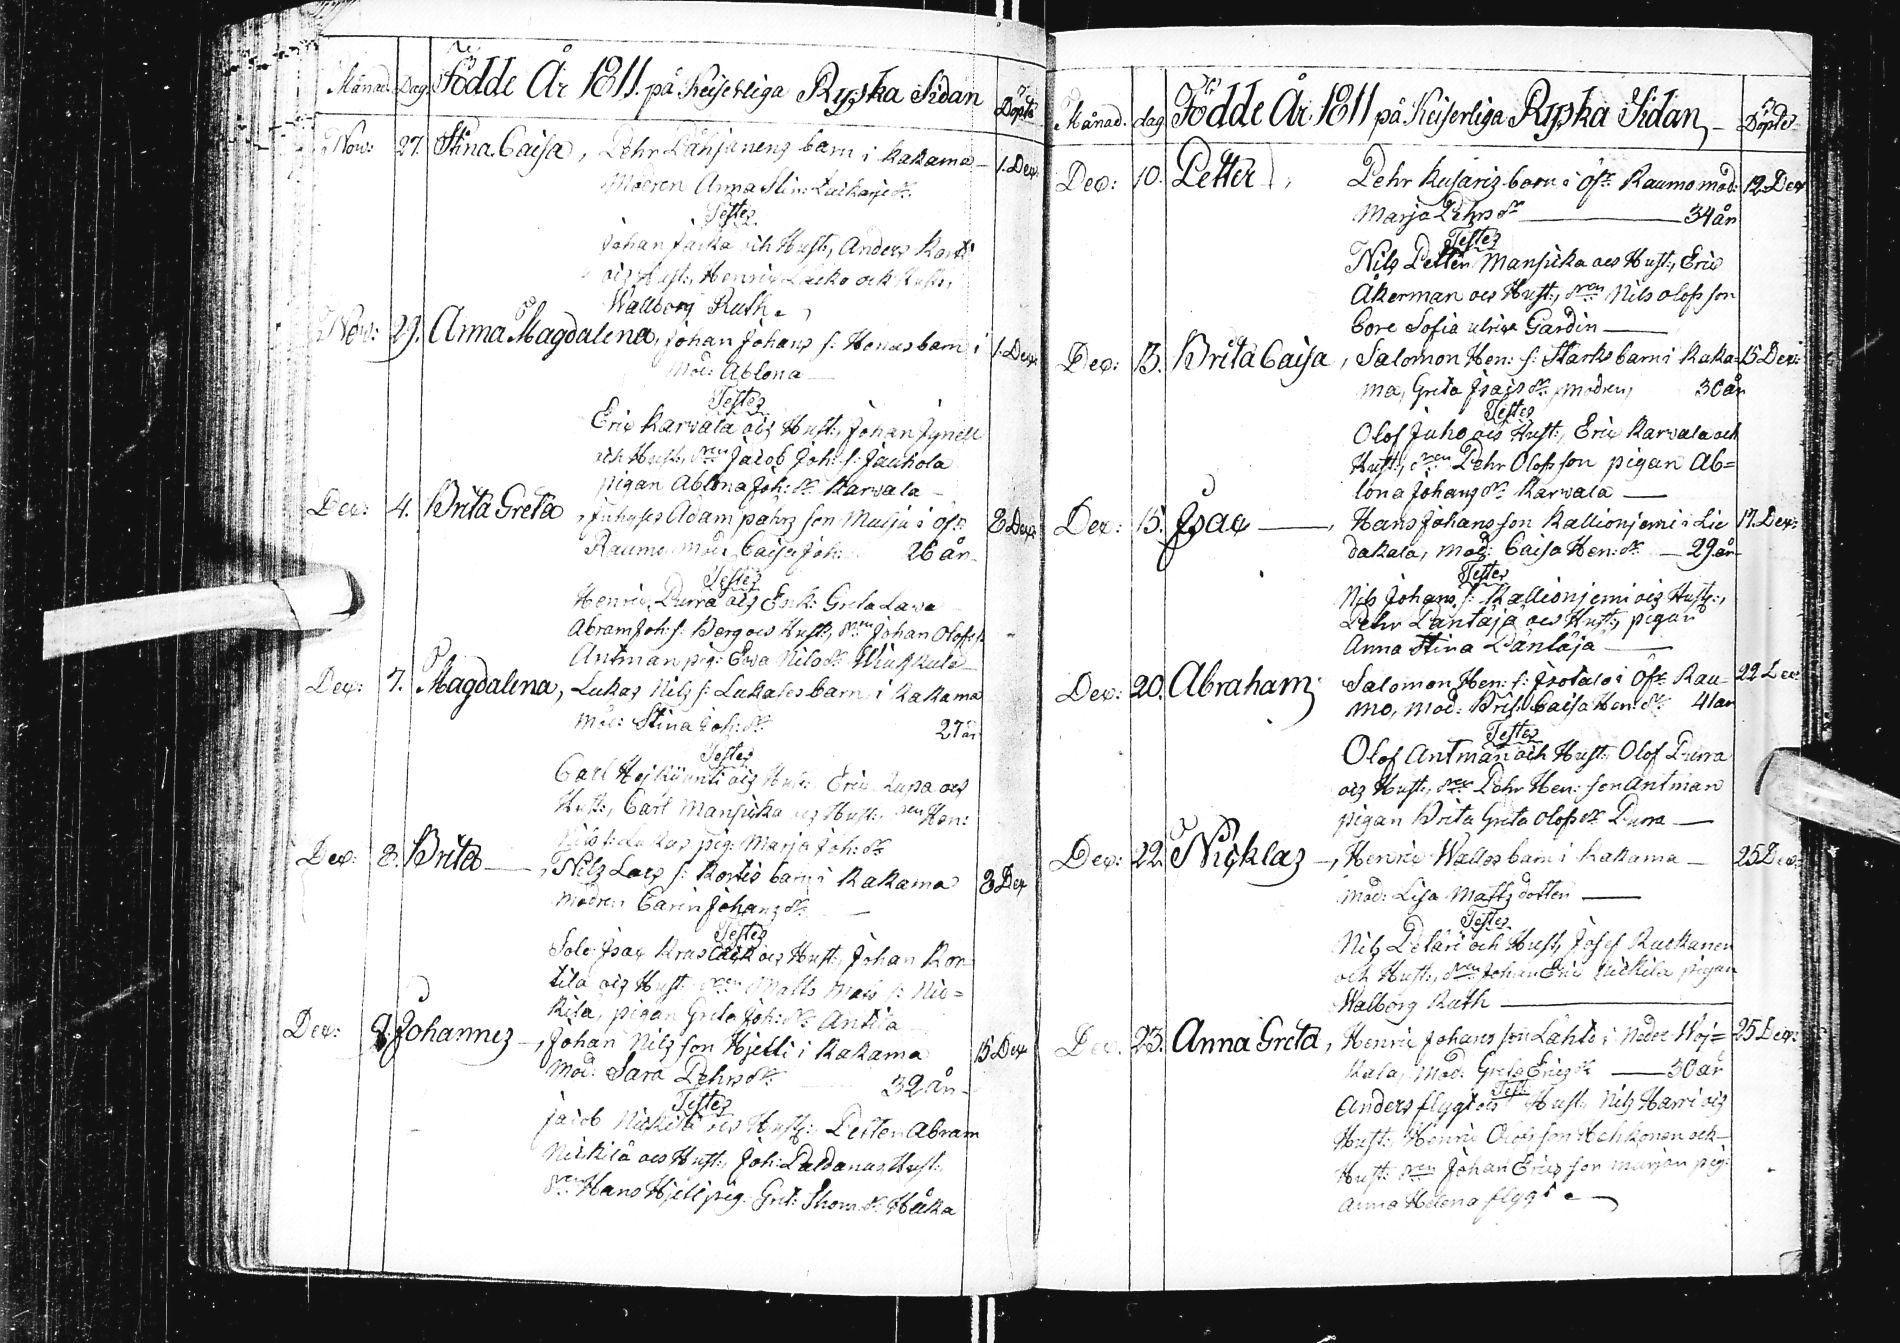 Månad. Dag. Födde År 1811. på Keiserliga Ryska Sidan Döpte
Nov: 27. Stina Caisa, Pehr Länjänens barn i Kakama 1. Dex:
Modren Anna Stin:
Testes
Johan Jacko och Hust:, Anders Korti
och Hust:, Henric Lacko och Hust:,
Wallborg Ruth.
Nov: 29. Anna Magdalena, Johan Johans s: Honas barn i 1. Dex:
Mod: Ablona
Testes
Eric Karvala och Hust:, Johan Jynell
och Hust:, dren Jacob Joh: s: Jauhola
pigan Ablona Joh: dr Karvala
Dex: 4. Brita Greta, Adam pahrs son Mulju i Öfr 8 Dex:
Raumo mod: Caisa Joh: 26 år
Testes
Henric Purra och Enk: Greta Lava
Abram Joh: s: Berg och Hust:, dren Johan Olofs s:
Antman pig: Ewa Nils dr
Dex: 7. Magdalena, Lukas Nils s: Lukases barn i Kakama
Mod: Stina Joh: dr 27 år
Testes
Carl Hejkünti och Hust:, Eric och
Hust:, Carl Mansicka och Hust:, dren Hen:
Nils s: Lukas pig: Marja Joh: dr
Dex: 8. Brita, Nils Lars s: Kortis barn i Kakama 8 Dex
Modren Carin Johans dr
Testes
Sold: Isac Krascack och Hust:, Johan Kor=
tila och Hust: dren Matts Mats s: Nic=
kila, pigan Greta Joh: dr Antila
Dex: 9. Johannes, Johan Nils son Hjetti i Kakama 15 Dex
Mod: Sara Pehrs dr 32 år
Testes
Jacob Nickila och Hust:, Petter Abram
Nickilä och Hust:, Joh: Paldanus Hust:
dr: Hans Hjeti pig: Gret: Thom: dr Håka
Månad. dag Födde År 1811 på Keiserliga Ryska Sidan, Döpte
Dex: 10. Petter, Pehr Kusaris barn i Öfr Raumo mod: 12. Dex
Marja Pehrs dr 34 år
Testes
Nils Petter Mansicka och Hust:, Eric
Åkerman och Hust:, dren Nils Olofs son
Core Sofia Ulrica Gardin
Dex: 13. Brita Caisa, Salomon Hen: s: Starks barn i Kaka= 15 Dex:
ma, Greta Isacs dr, Modren, 30 år
Testes
Olof Juho och Hust:, Eric Karvala och
Hust:, dren Pehr Olofs son pigan Ab=
lona Johans dr Karvala
Dex: 15. Isac, Hans Johans son Kallionjemi i Lie 17. Dex:
dakala, mod: Caisa Hen: dr 29 år
Testes
Nils Johans s: Kallionjemi och Hust:,
Pehr Pantäjä och Hust:, pigan
Anna Stina Päntäjä
Dex: 20. Abraham, Salomon Hen: s: Isotalo i Öfr Rau= 22 Dex:
mo, mod: Brit: Caisa Hen: dr 41 år
Testes
Olof Antman och Hust:, Olof Purra
och Hust:, dren Pehr Hen: son Antman
pigan Brita Greta Olofs dr Purra
Dex: 22. Nicklas, Henric Wallos barn i Kakama 25 Dex:
mod: Lisa Matts dotter
Testes
Nils Petäri och Hust:, Josef Ruckanen
och Hust:, dren Johan Eric Nickila pigan
Walborg Ruth
Dex: 23. Anna Greta, Henric Johans son Lahti i Neder Woj= 25 Dex:
kala, Mod: Greta Erics dr 30 år
Test:
Anders flygt och Hust:, Nils Harri och
Hust:, Henric Olofs son Hehkonen och
Hust: dren Johan Erics son Marjan pig:
Anna Helena flygt